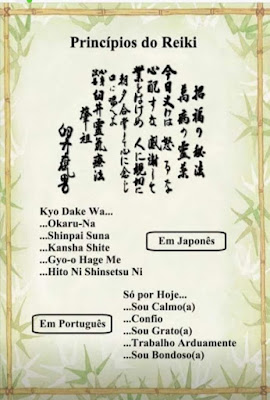 Princípios do Reiki
招福の秘法
萬病の霊薬
今日丈けは 怒るな
心配すな 感謝して
業をはげめ 人に親切に
朝夕合掌して心に念じ
口に唱へよ
心身改善 臼井靈氣療法
肇祖
臼井甕男
Kyo Dake Wa...
...Okaru-Na
...Shinpai Suna
...Kansha Shite
...Gyo-o Hage Me
...Hito Ni Shinsetsu Ni
Em Japonês
Só por Hoje...
...Sou Calmo(a)
...Confio
...Sou Grato(a)
...Trabalho Arduamente
...Sou Bondoso(a)
Em Português